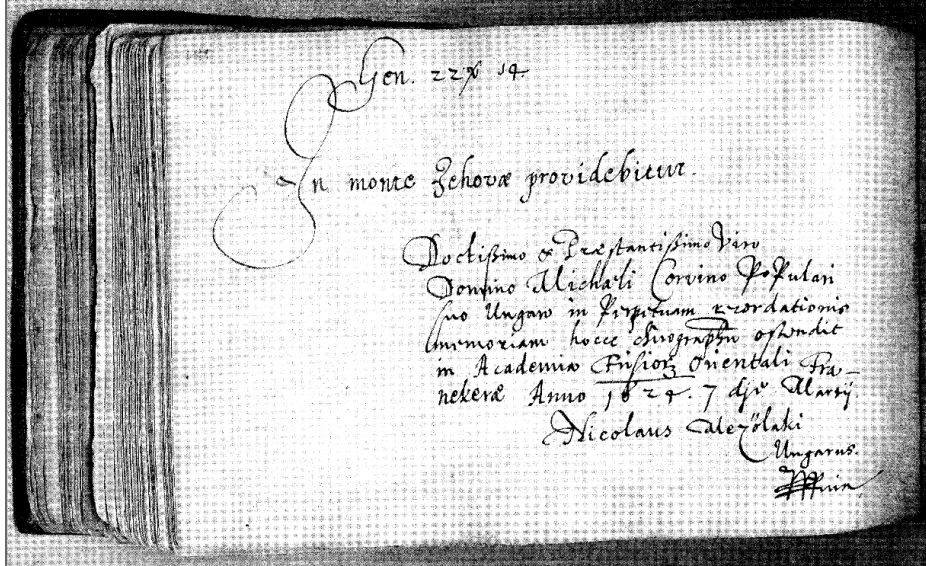 Gen. 22 ỹ 14
In monte Jehovæ providebitur.
Doctissimo & Præstantissimo Viro
Domino Michaëli Corvino Populari
suo Ungaro in Perpetuam recordationis
memoriam hocce chirographū ostendit
in Academia Orientali Fra-
nekeræ Anno 1624. 7 die Martij
Nicolaus
Ungarus.